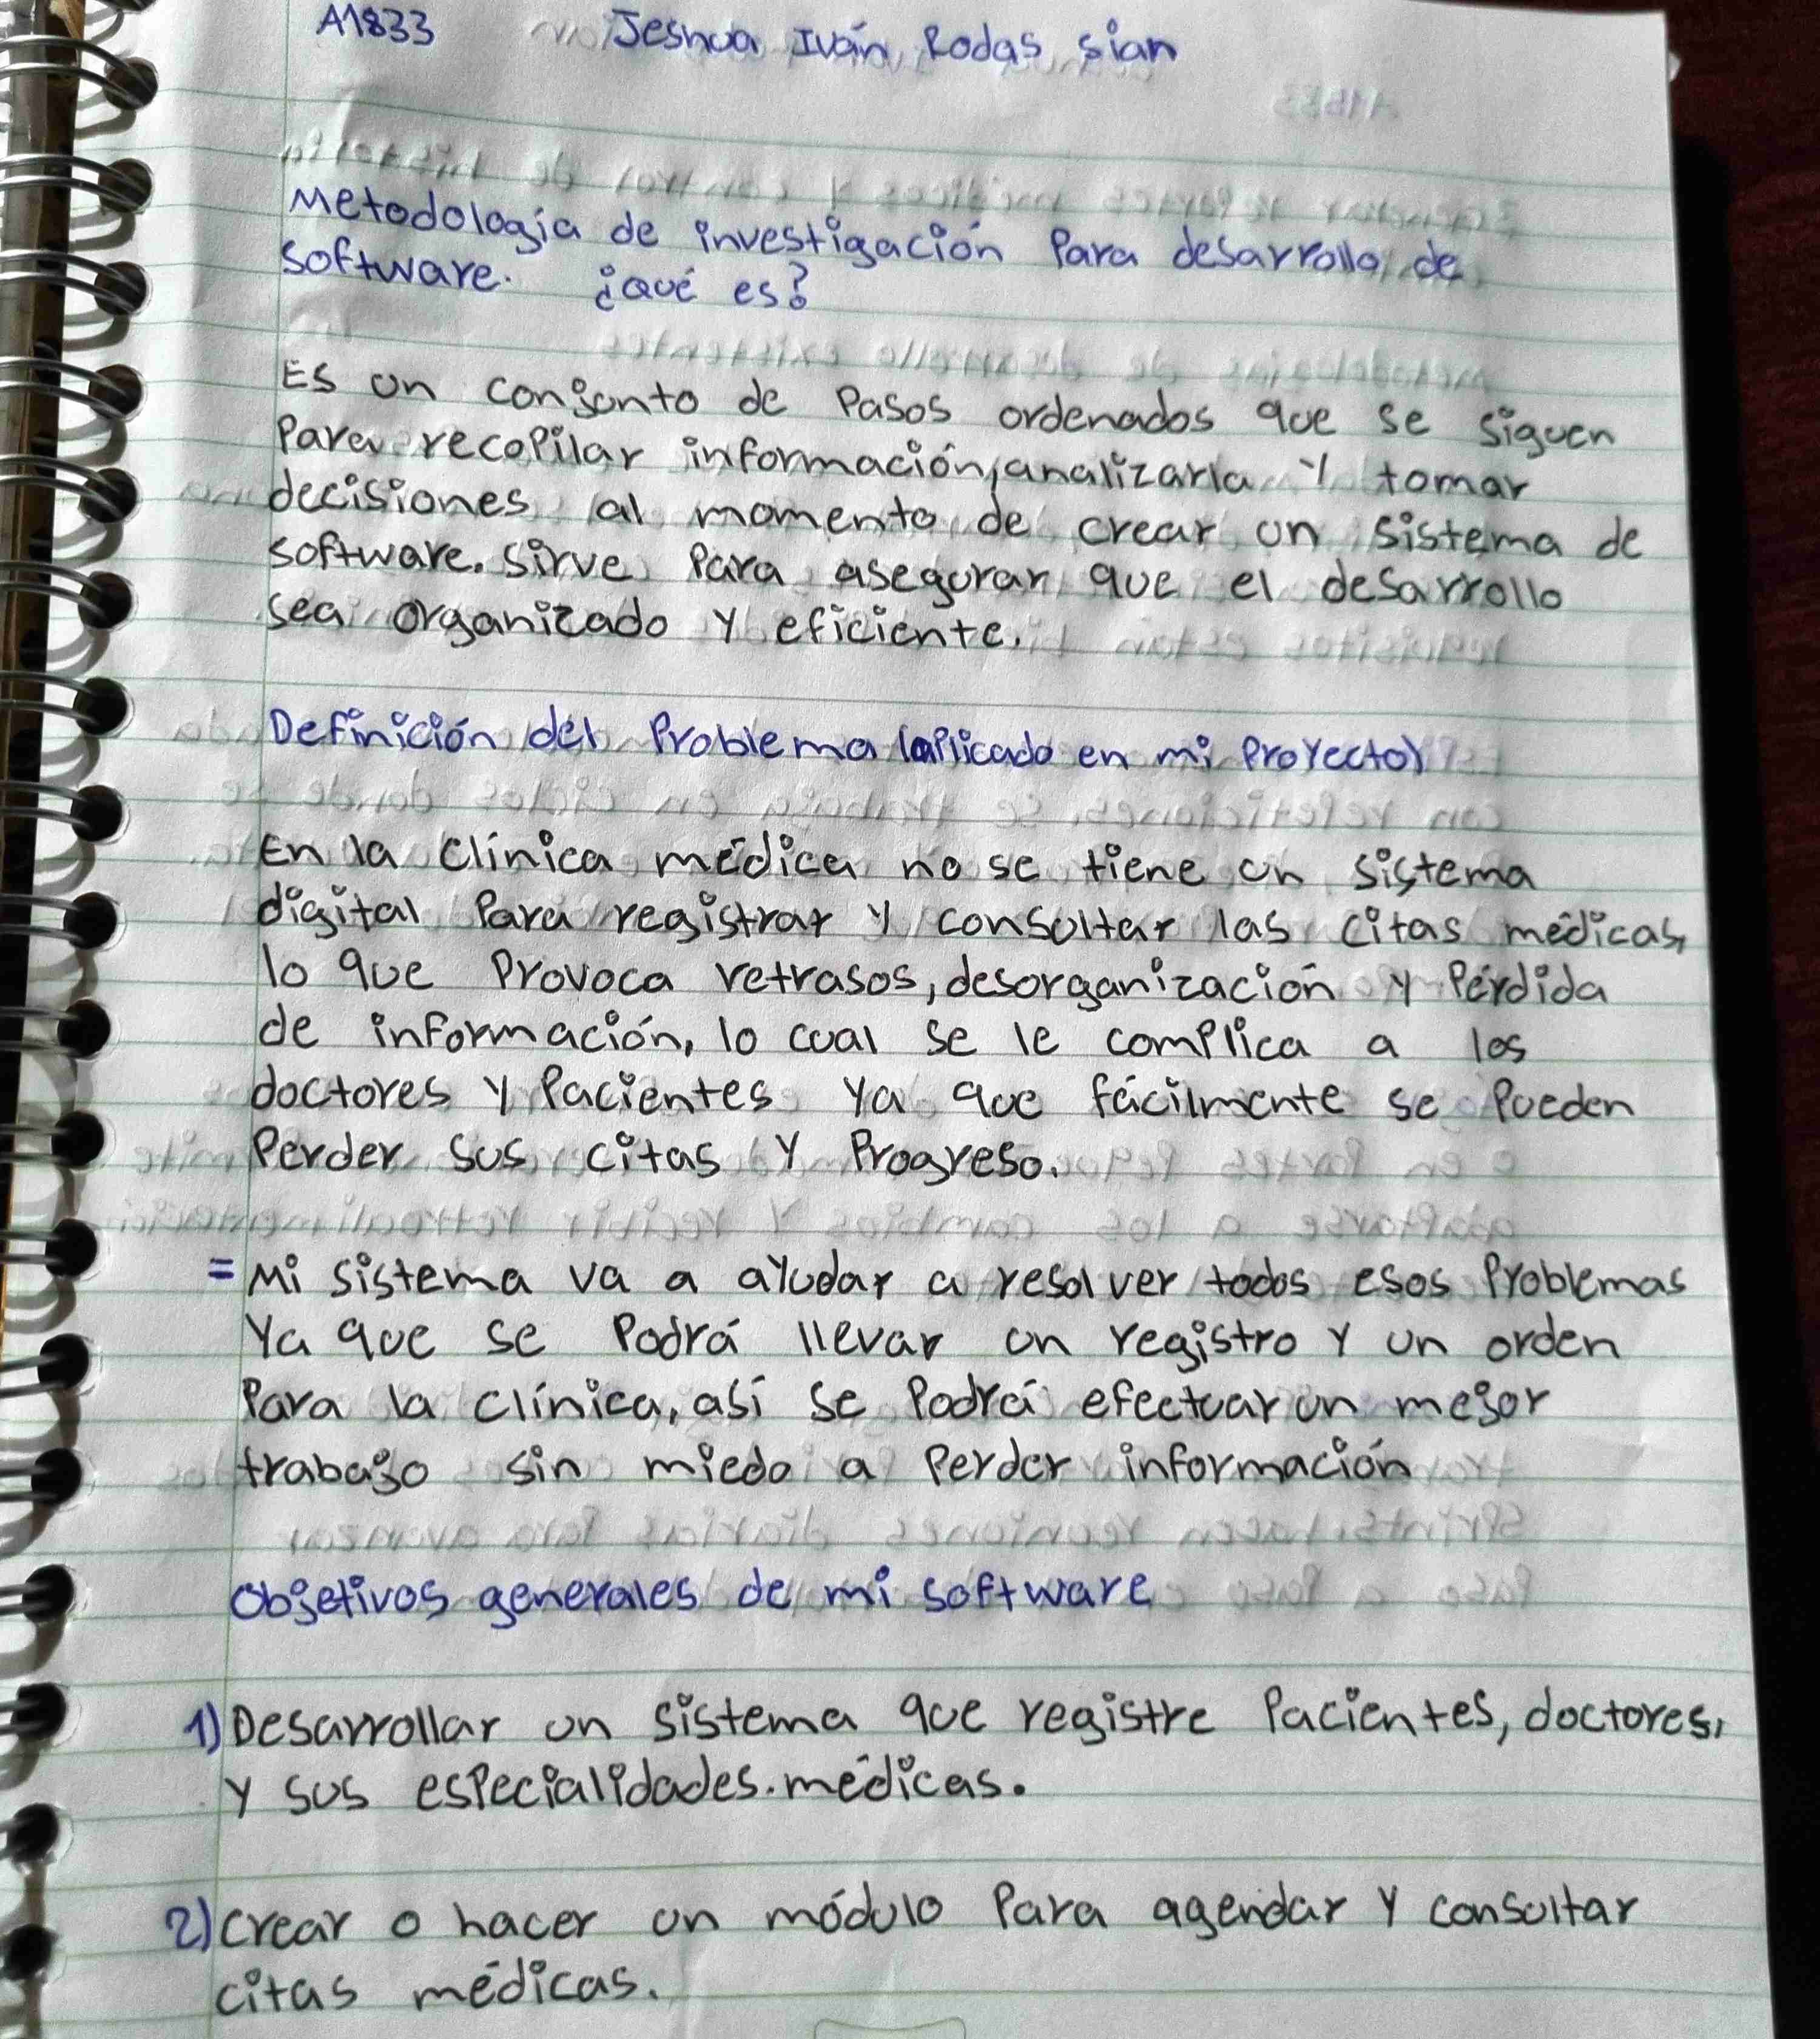 A1833 Jeshua Iván Rodas Sian
Metodología de investigación Para desarrollo de
software. ¿Qué es?
Es un conjunto de Pasos ordenados que se siguen
Para recopilar información, analizarla y tomar
decisiones al momento de crear un sistema de
software. Sirve Para asegurar que el desarrollo
sea organizado y eficiente.
Definición del Problema (aplicado en mi Proyecto)
En la clínica médica no se tiene un sistema
digital Para registrar y consultar las citas médicas,
lo que Provoca retrasos, desorganización y Pérdida
de información, lo cual se le complica a los
doctores y Pacientes ya que fácilmente se Pueden
Perder sus citas y Progreso.
= Mi sistema va a ayudar a resolver todos esos Problemas
Ya que se Podrá llevar un registro y un orden
Para la clínica, así se Podrá efectuar un mejor
trabajo sin miedo a Perder información
Objetivos generales de mi software
1) Desarrollar un sistema que registre Pacientes, doctores,
y sus especialidades. médicas.
2) crear o hacer un módulo Para agendar y consultar
citas médicas.